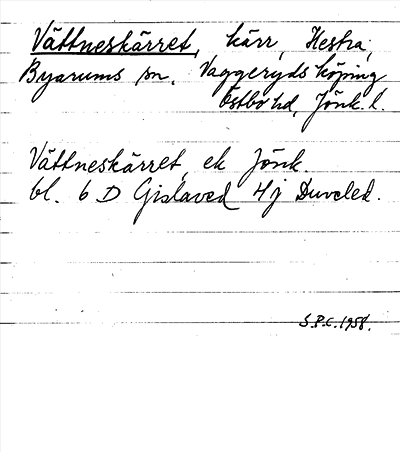 Vättneskärret, kärr, Hestra,
Byarums sn, Vaggeryds köping
Östbo hd, Jönk. l.
Vättneskärret ek Jönk.
bl. 6 D Gislaved 4j Duveled.
S.P.C. 1958.